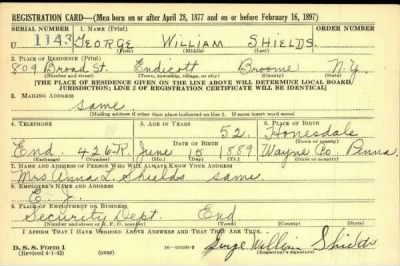 REGISTRATION CARD—(Men born on or after April 28, 1877 and on or before February 16, 1897)
SERIAL NUMBER 1. NAME (Print) ORDER NUMBER
U 1143 GEORGE WILLIAM SHIELDS.
(First) (Middle) (Last)
2. PLACE OF RESIDENCE (Print)
809 Broad St. Endicott Broome N.Y.
(Number and street) (Town, township, village, or city) (County) (State)
[THE PLACE OF RESIDENCE GIVEN ON THE LINE ABOVE WILL DETERMINE LOCAL BOARD JURISDICTION; LINE 2 OF REGISTRATION CERTIFICATE WILL BE IDENTICAL]
3. MAILING ADDRESS
Same
(Mailing address if other than place indicated on line 2. If same insert word same)
4. TELEPHONE 5. AGE IN YEARS 6. PLACE OF BIRTH
52. Honesdale
DATE OF BIRTH (Town or county)
End. 426-R. June 15 1889 Wayne Co. Penna.
(Exchange) (Number) (Mo.) (Day) (Yr.) (State or country)
7. NAME AND ADDRESS OF PERSON WHO WILL ALWAYS KNOW YOUR ADDRESS
Mrs Anna L. Shields same.
8. EMPLOYER'S NAME AND ADDRESS
E. J.
9. PLACE OF EMPLOYMENT OR BUSINESS
Security Dept. End
(Number and street or R. F. D. number) (Town) (County) (State)
I AFFIRM THAT I HAVE VERIFIED ABOVE ANSWERS AND THAT THEY ARE TRUE.
D. S. S. Form 1 George William Shields
(Revised 4-1-42) (over) (Registrant's signature)